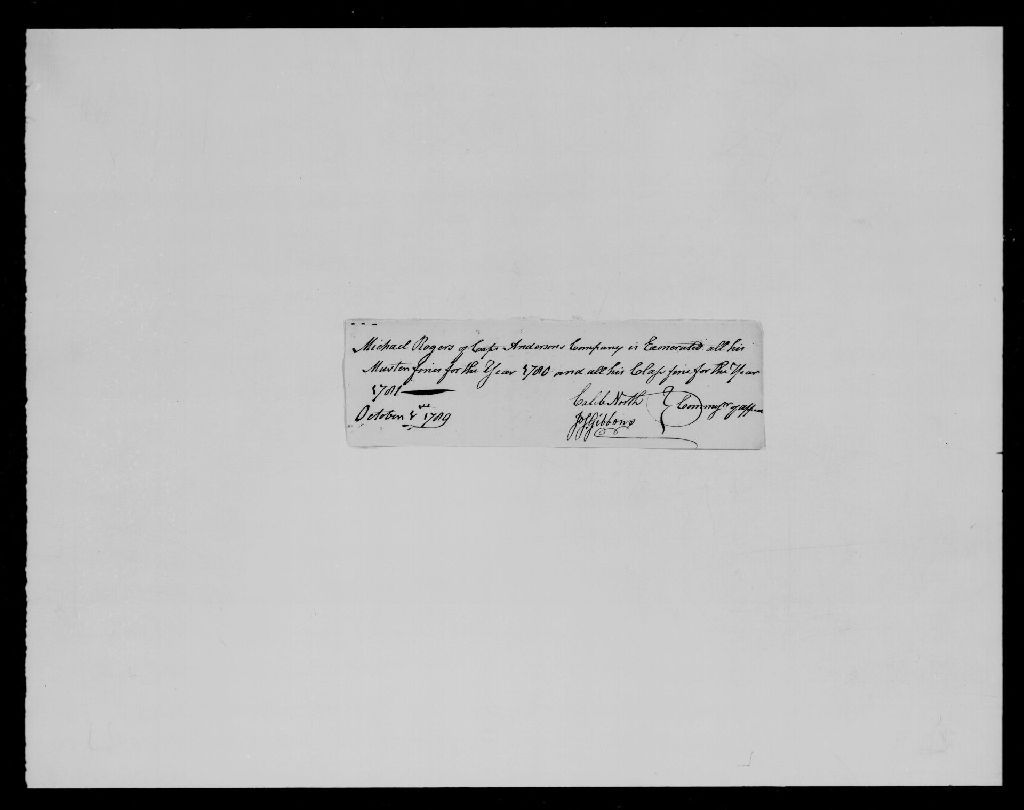 Michael Rogers of Capt Andersons Company is Exonerated all his
Muster fines for the Year 1780 and all his Class fine for the Year
1781
Caleb North
October 1789
Jos Gibbons
Commrs of app